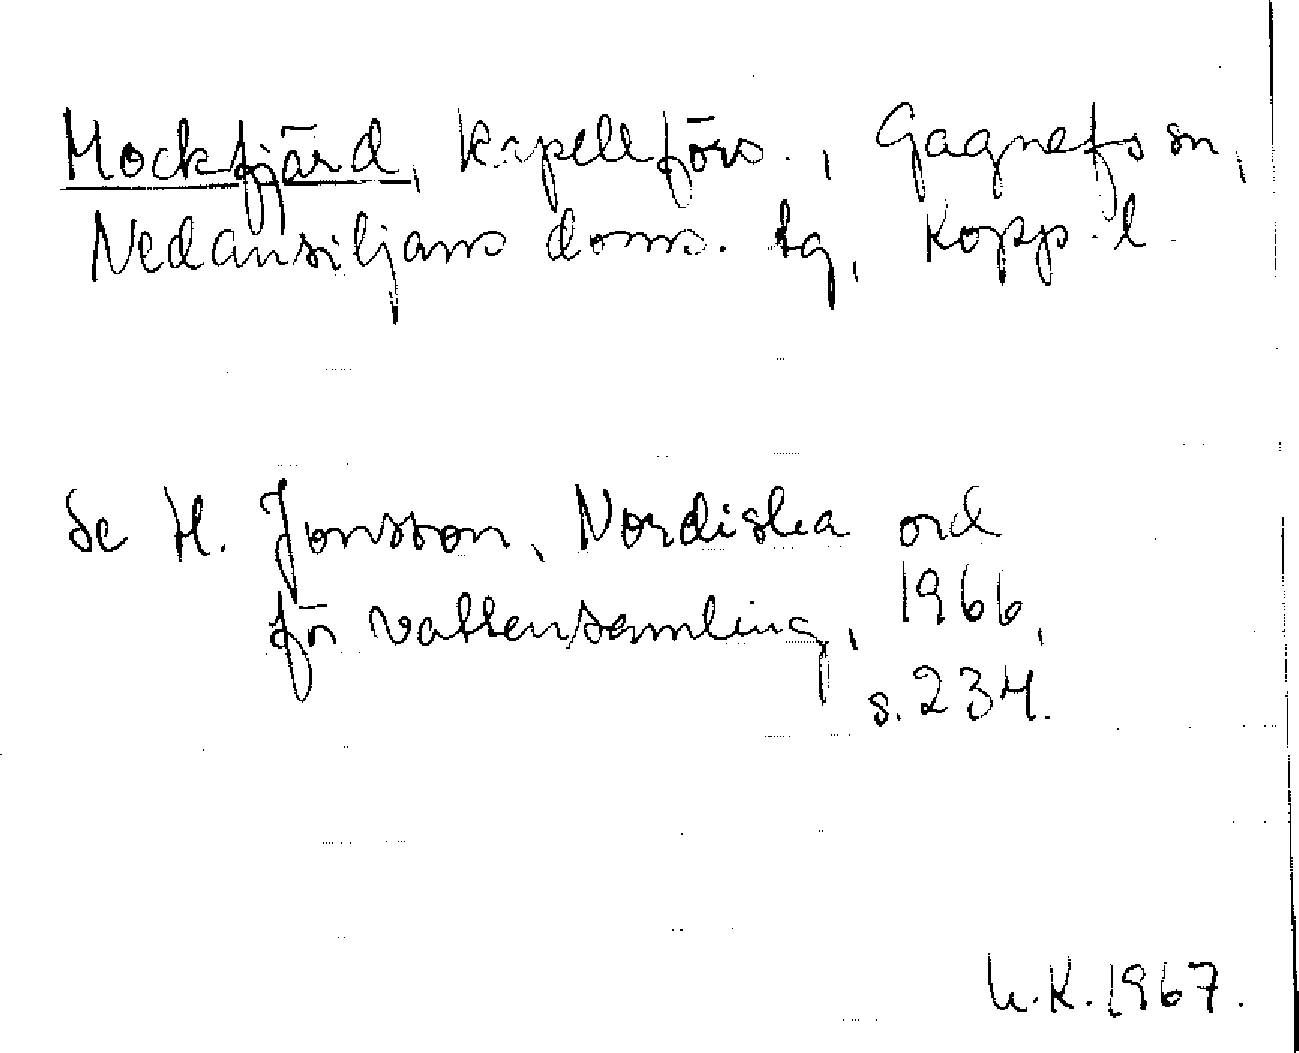 Mockfjärd, kapellförs., Gagnefs sn,
Nedansiljans doms. tg, Kopp. l.
Se H. Jonsson, Nordiska ord
för vattensamling, 1966,
s. 234.
L.K. 1967.